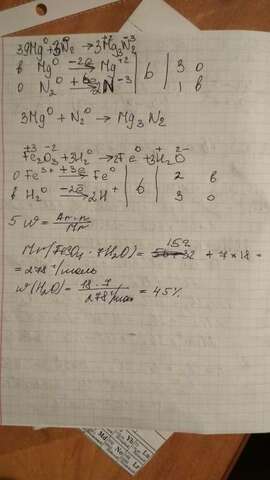 3Mg⁰ + N₂⁰ → Mg₃⁺²N₂⁻³
в Mg⁰ -2e → Mg⁺² | 6 | 3 о
о N₂⁰ +6e → 2N⁻³ | 1 в
3Mg⁰ + N₂⁰ → Mg₃N₂
Fe₂⁺³O₃⁻² + 3H₂⁰ → 2Fe⁰ + 3H₂⁺O²⁻
о Fe³⁺ +3e → Fe⁰ | 6 | 2 в
в H₂⁰ -2e → 2H⁺ | 3 о
5 w = Ar·n / Mr
Mr(FeSO₄ · 7H₂O) = 152 + 7×18 =
= 278 г/моль
w(H₂O) = 18·7 / 278 г/моль = 45%
Md No Lr
Yb Lu